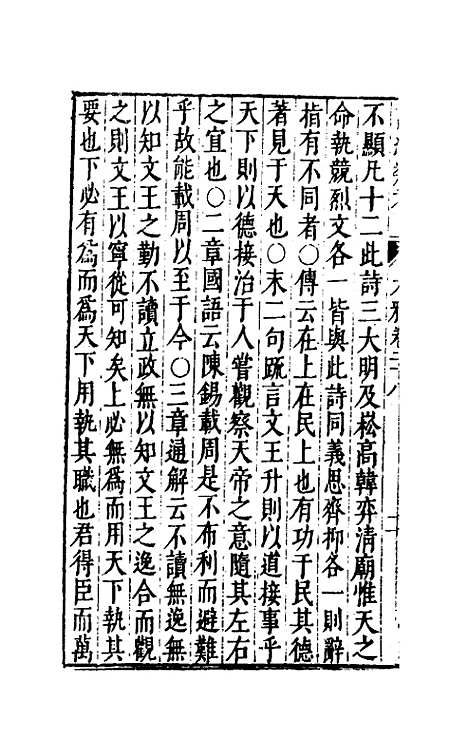 不顯凡十二此詩三大明及崧高韓弈清廟惟天之
命執競烈文各一皆與此詩同義思齊抑各一則辭
指有不同者○傳云在上在民上也有功于民其德
著見于天也○末二句疏言文王升則以道接事乎
天下則以德接治于人嘗觀察天帝之意隨其左右
之宜也○二章國語云陳錫載周是不布利而避難
乎故能載周以至于今○三章通解云不讀無逸無
以知文王之勤不讀立政無以知文王之逸合而觀
之則文王以寧從可知矣上必無爲而用天下執其
要也下必有爲而爲天下用執其職也君得臣而萬